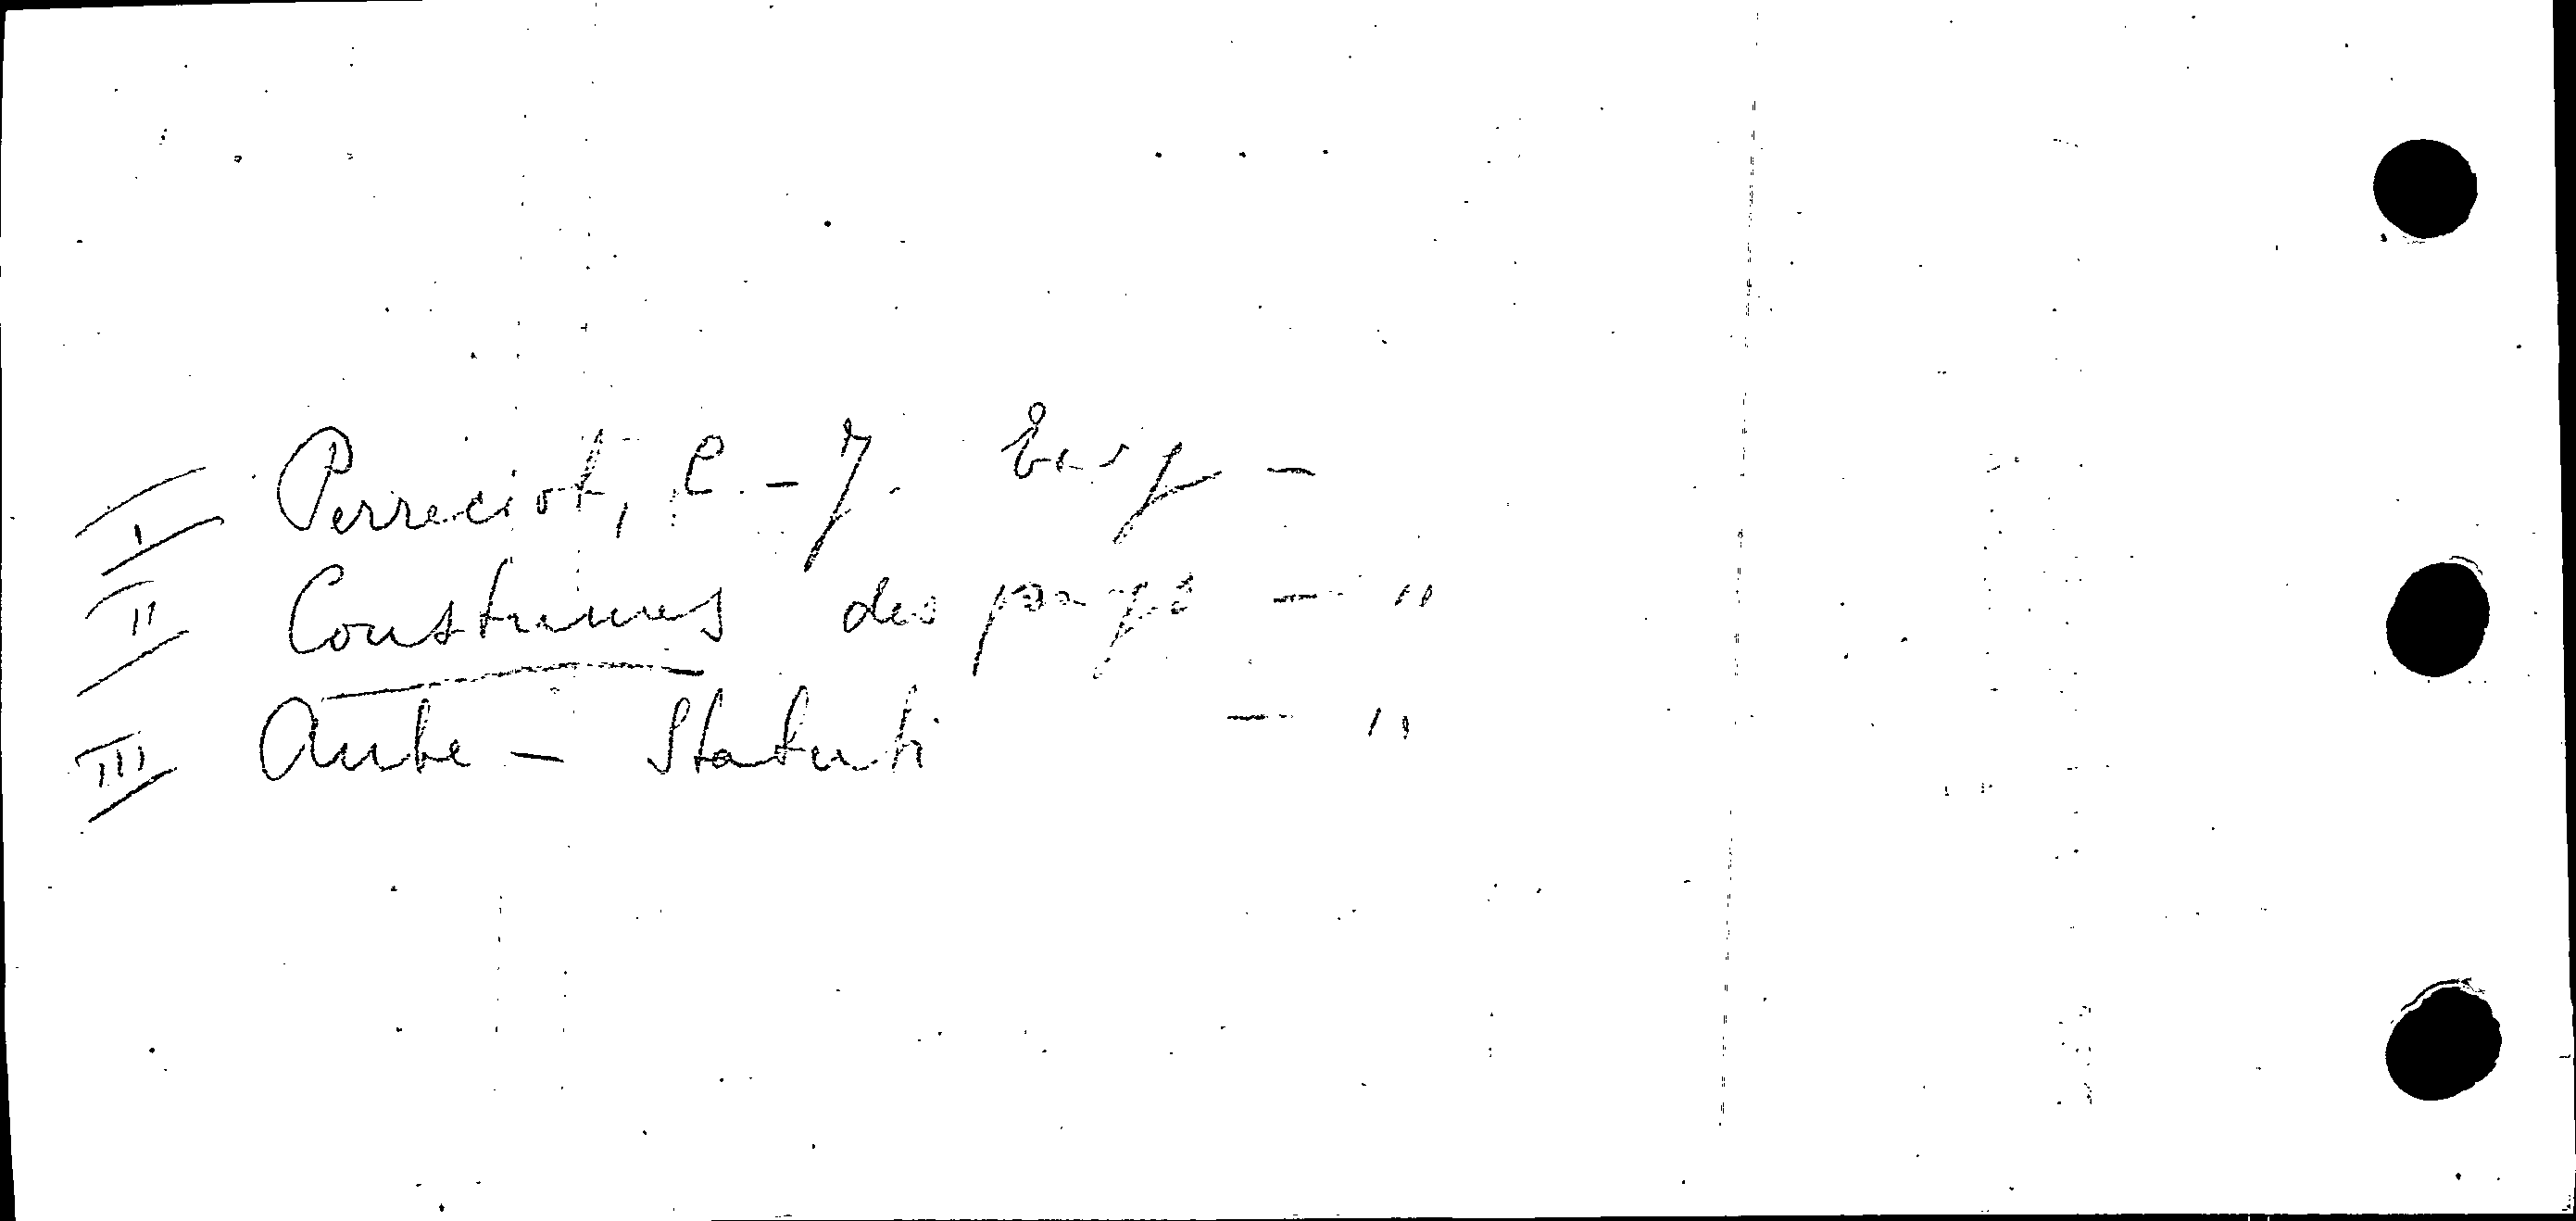 I Perreciot, C.-J.
II Coustumes des pays - "
III Aube - Statuti - "